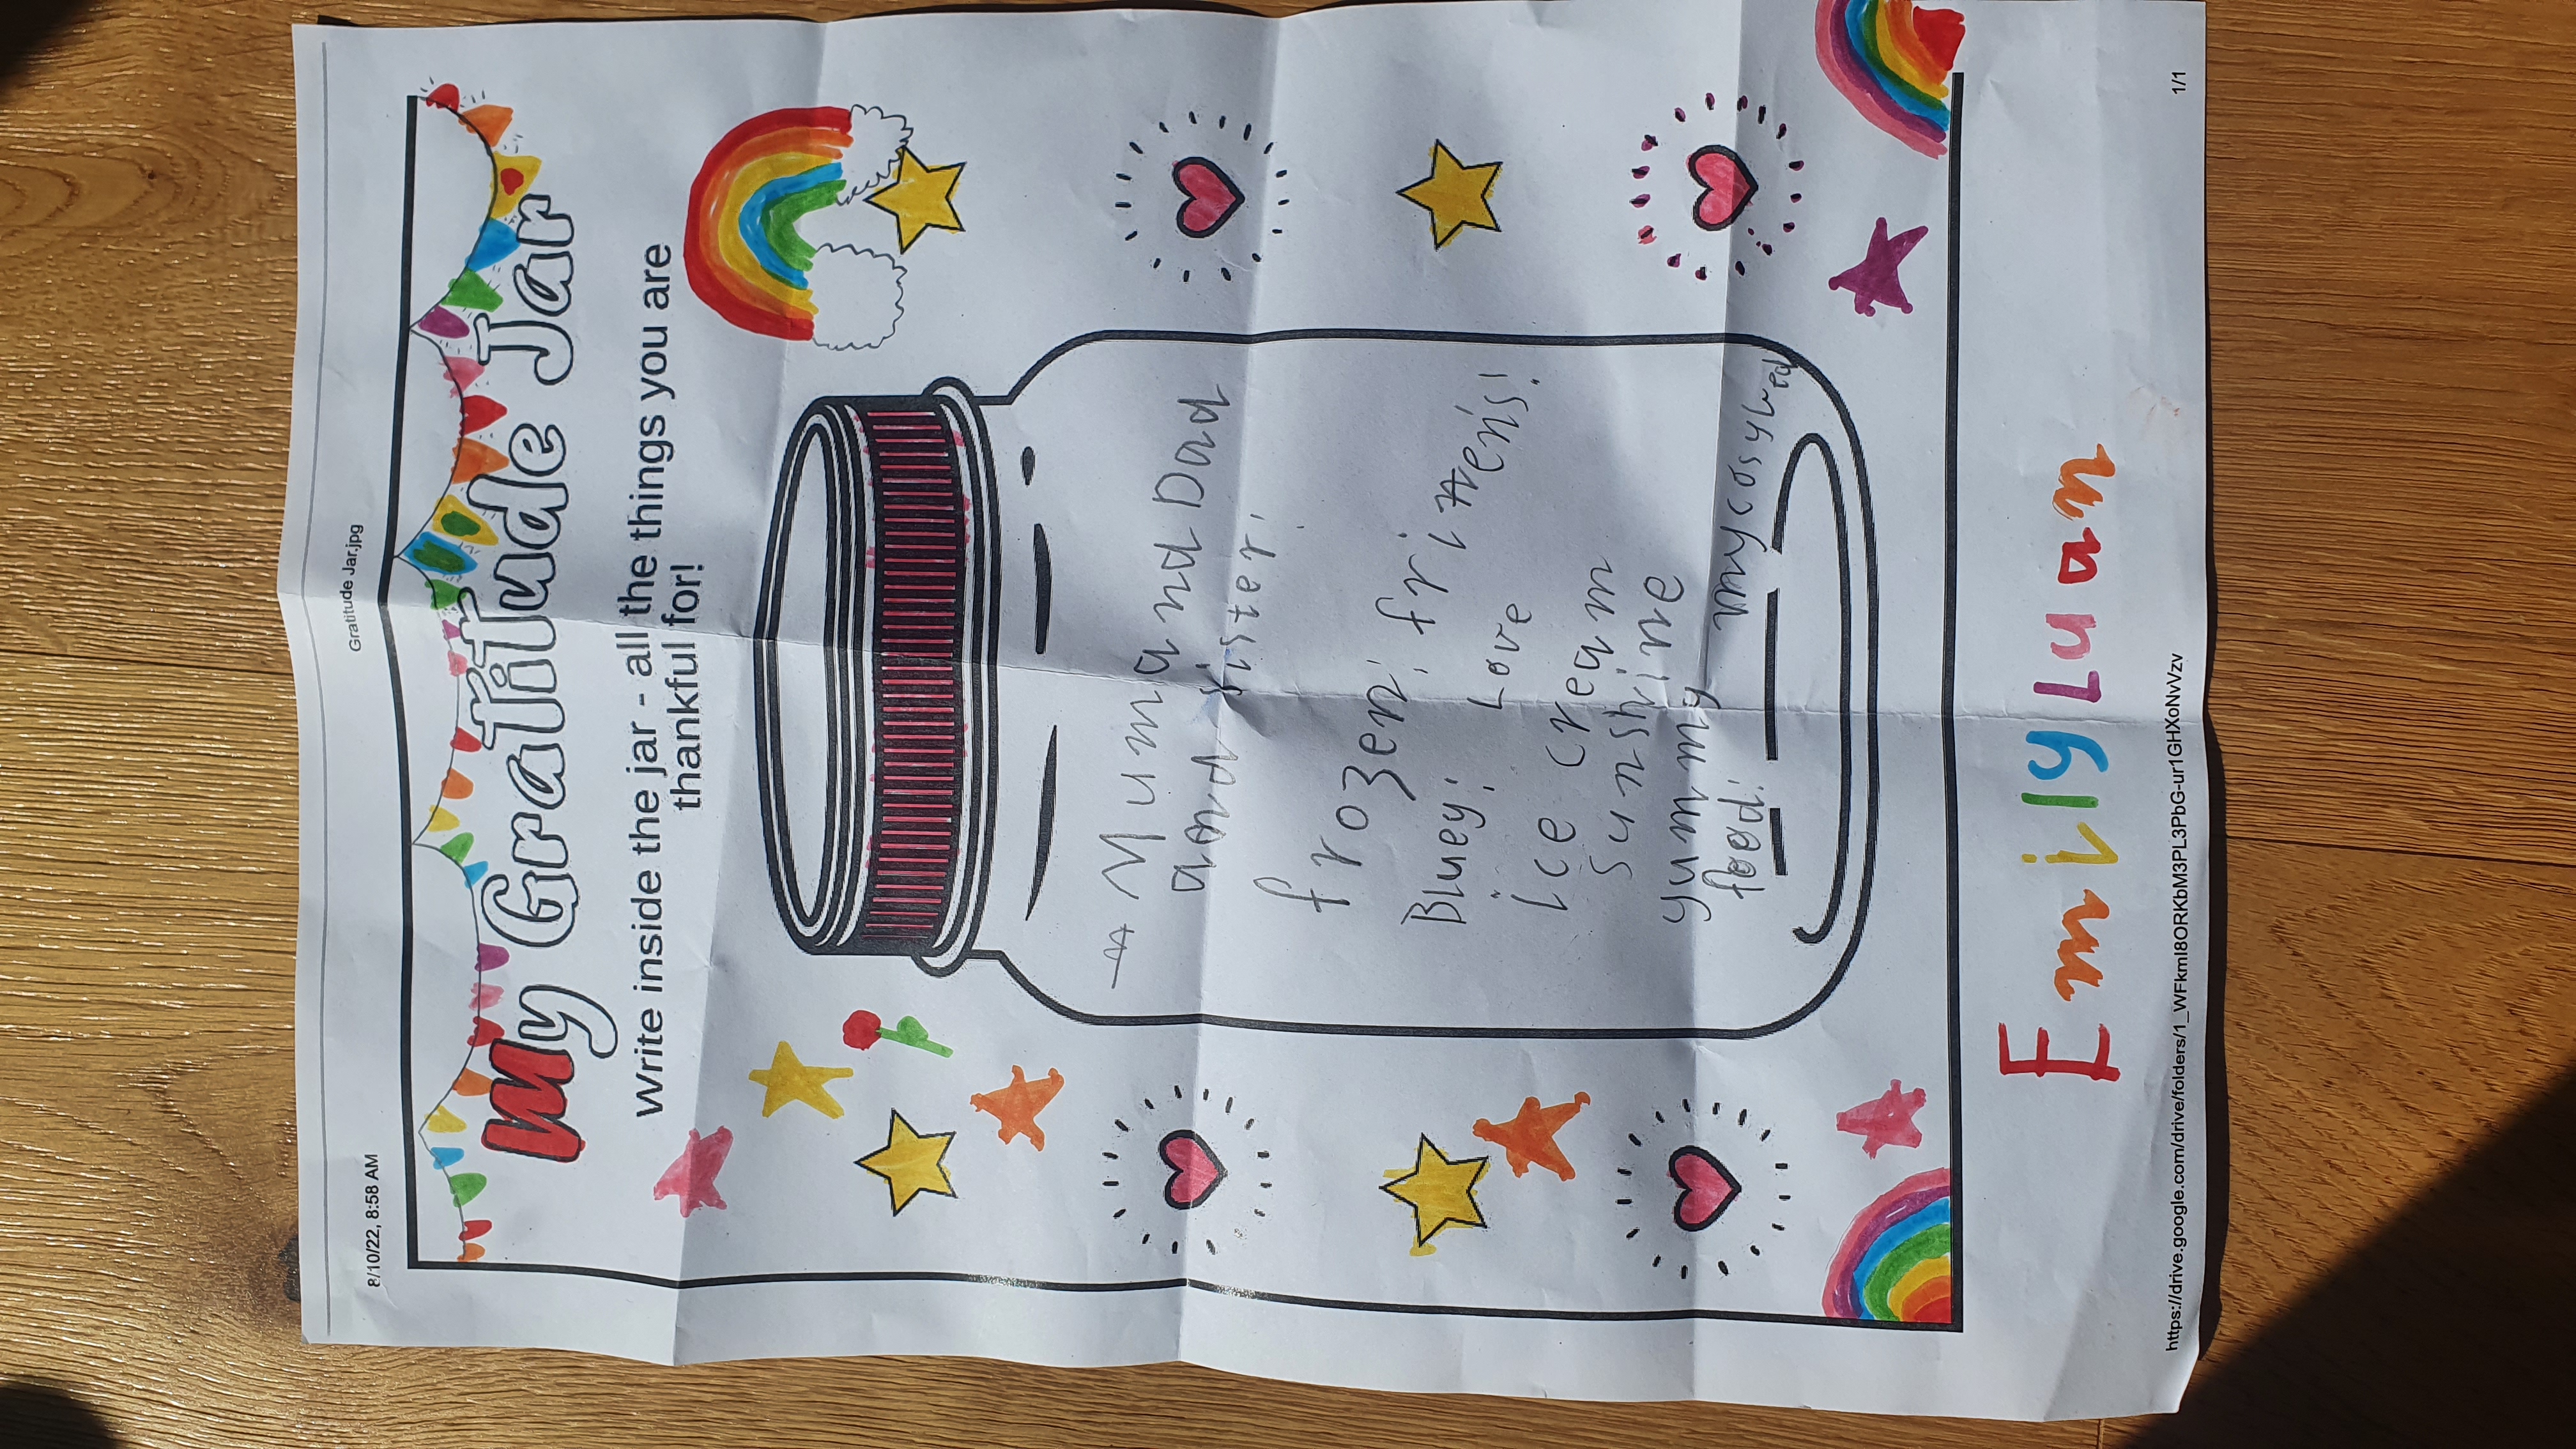 8/10/22, 8:58 AM
Gratitude Jar.jpg
My Gratitude Jar
Write inside the jar - all the things you are
thankful for!
Mum and Dad
and sister!
frozen!
Bluey!
Love
ice cream
sunshine
yummy
food!
my cosy bed
Emily Luan
https://drive.google.com/drive/folders/1_WFkml8ORKbM3PL3PbG-ur1GHXoNvVzv
1/1